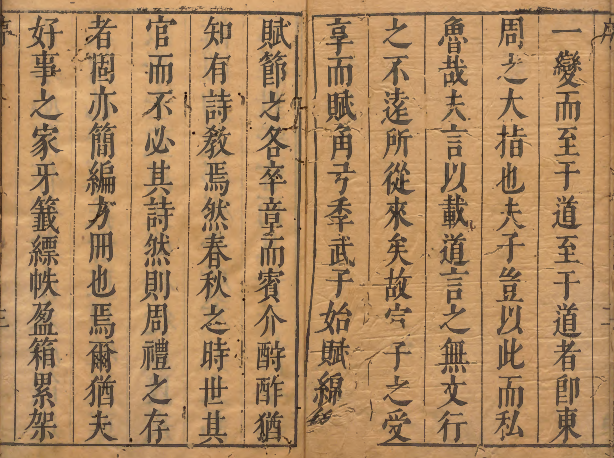 一變而至于道至于道者卽東
周之大指也夫子豈以此而私
魯哉夫言以載道言之無文行
之不遠所從來矣故宣子之受
享而賦角弓季武子始賦綿
賦節之各卒章而賓介酧酢猶
知有詩敎焉然春秋之時世其
官而不必其詩然則周禮之存
者固亦簡編方冊也焉爾猶夫
好事之家牙籤縹帙盈箱累架